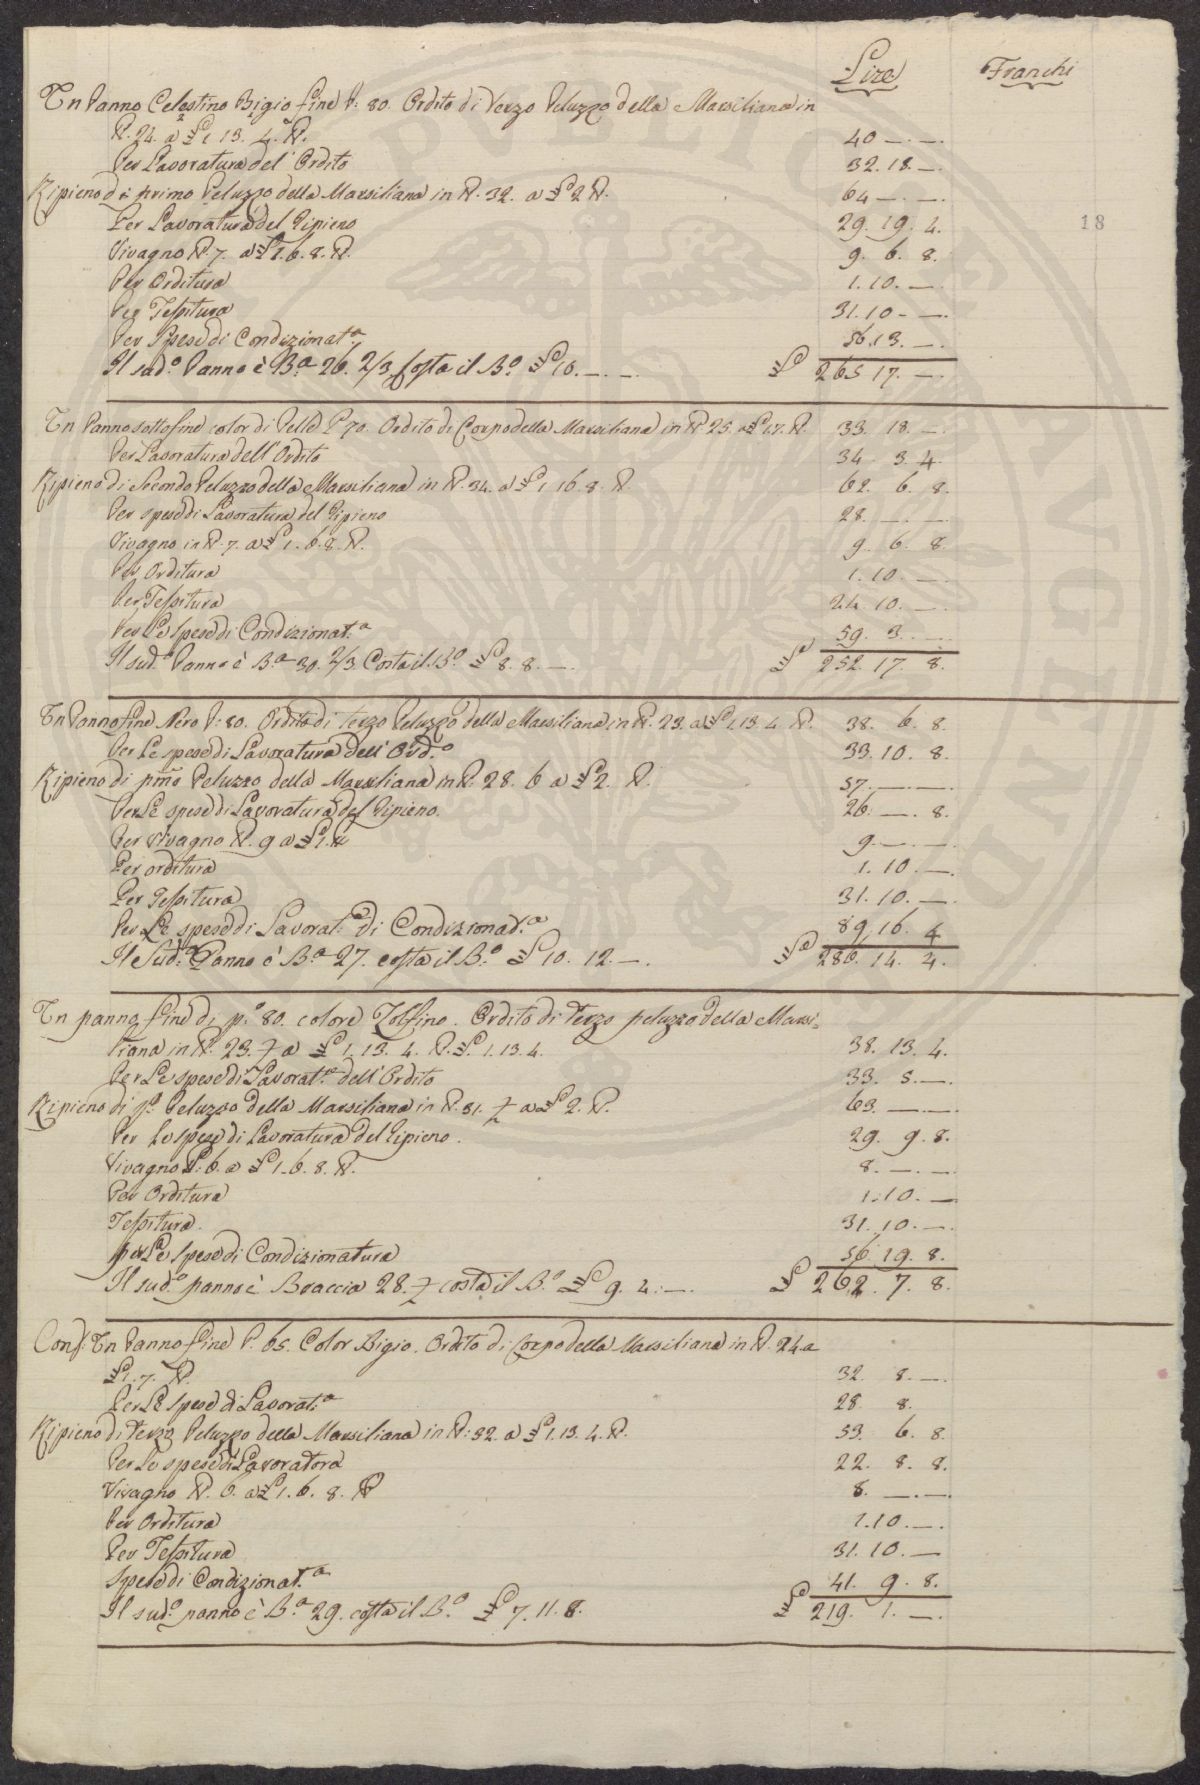 Lire Franchi
Un Panno Celestino Bigio fine P: 80. Ordito di Terzo Peluzzo della Marsiliana in
℔. 24. a £ 1. 13. 4. ℔. 40 — . —
Per Lavoratura del' Ordito 32. 18. —
Ripieno di primo Peluzzo della Marsiliana in ℔. 32. a £ 2 ℔. 64 — . —
Per Lavoratura del Ripieno 29. 19. 4.
18
Vivagno ℔ 7. a £ 1. 6. 8. ℔. 9. 6. 8.
Per Orditura 1. 10. —
Per Tessitura 31. 10 - —
Per Spese di Condizionat.a 56. 13. —
Il sud.o Panno è B.a 26. 2/3 costa il B.o £ 10. — . — £ 265 17. —
Un Panno sottofine color di Pelle P 70. Ordito di Corpo della Marsiliana in ℔ 25. a £ 1. 7. ℔. 33. 18. —
Per Lavoratura dell' Ordito 34. 3. 4.
Ripieno di Secondo Peluzzo della Marsiliana in ℔. 34. a £ 1. 16. 8. ℔ 62. 6. 8.
Per spese di Lavoratura del Ripieno 28. — . —
Vivagno in ℔. 7. a £ 1. 6. 8. ℔. 9. 6. 8.
Per Orditura 1. 10. —
Per Tessitura 24. 10. —
Per Le Spese di Condizionat.a 59. 3. —
Il sud.o Panno è B.a 30. 2/3 Costa il B.o £ 8. 8. — £ 252. 17. 8.
Un Panno fine Nero P: 80. Ordito di terzo Peluzzo della Marsiliana in ℔. 23. a £ 1. 13. 4. ℔. 38. 6. 8.
Per Le spese di Lavoratura dell' Ord.o 33. 10. 8.
Ripieno di prmo Peluzzo della Marsiliana in ℔. 28. 6 a £ 2. ℔. 57. — . —
Per Le spese di Lavoratura del Ripieno. 26. — . 8.
Per Vivagno ℔. 9 a £ 1. ℔ 9. — . —
Per orditura 1. 10. —
Per Tessitura 31. 10. —
Per Le spese di Lavorat.a di Condizionat.a 89. 16. 4
Il Sud.o Panno è B.a 27. costa il B.o £ 10. 12. — . £ 286. 14. 4.
Un panno fine di p.o 80. colore Zolfino. Ordito di Terzo peluzzo della Marsi=
liana in ℔. 23. a £ 1. 13. 4. ℔. £ 1. 13. 4. 38. 13. 4.
Per Le spese di Lavorat.a dell' Ordito 33. 5. —
Ripieno di p.o Peluzzo della Marsiliana in ℔. 31. 1/2 a £ 2. ℔. 63. — . —
Per Le spese di Lavoratura del Ripieno. 29. 9. 8.
Vivagno ℔. 6. a £ 1. 6. 8. ℔. 8. — . —
Per Orditura 1. 10. —
Tessitura. 31. 10. —
per Le Spese di Condizionatura 56. 19. 8.
Il sud.o panno è Braccia 28. 1/2 costa il B.o £ 9. 4. — £ 262. 7. 8.
Cons: Un Panno fine P. 65. Color Bigio. Ordito di Corpo della Marsiliana in ℔. 24 a
£ 1. 7. ℔. 32. 8. —
Per Le Spese di Lavorat.a 28. 8.
Ripieno di Terzo Peluzzo della Marsiliana in ℔. 32. a £ 1. 13. 4. ℔. 53. 6. 8
Per Le spese di Lavoratora 22. 8. 8.
Vivagno ℔. 6. a £ 1. 6. 8. ℔ 8. — . —
Per Orditura 1. 10. —
Per Tessitura 31. 10. —
Spese di Condizionat.a 41. 9. 8.
Il sud.o panno è B.a 29. costa il B.o £ 7. 11. 8. £ 219. 1. —